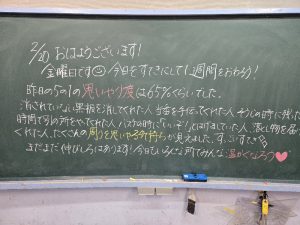 2/20 おはようございます!
金曜日です☺ 今日をすてきにして1週間をおわろう!
昨日の5の1の思いやり度は65%くらいでした。
消されていない黒板を消してくれた人 当番を手伝ってくれた人 そうじの時に残った
時間で別の所をやってくれた人 バスケの時に「いいぞ!」とはげましていた人 落とし物を届
くれた人、たくさんの周りを思いやる気持ちが見えました。すごいすてき
まだまだ伸びしろはあります! 今日もいろんな所でみんな温かくなろう♥